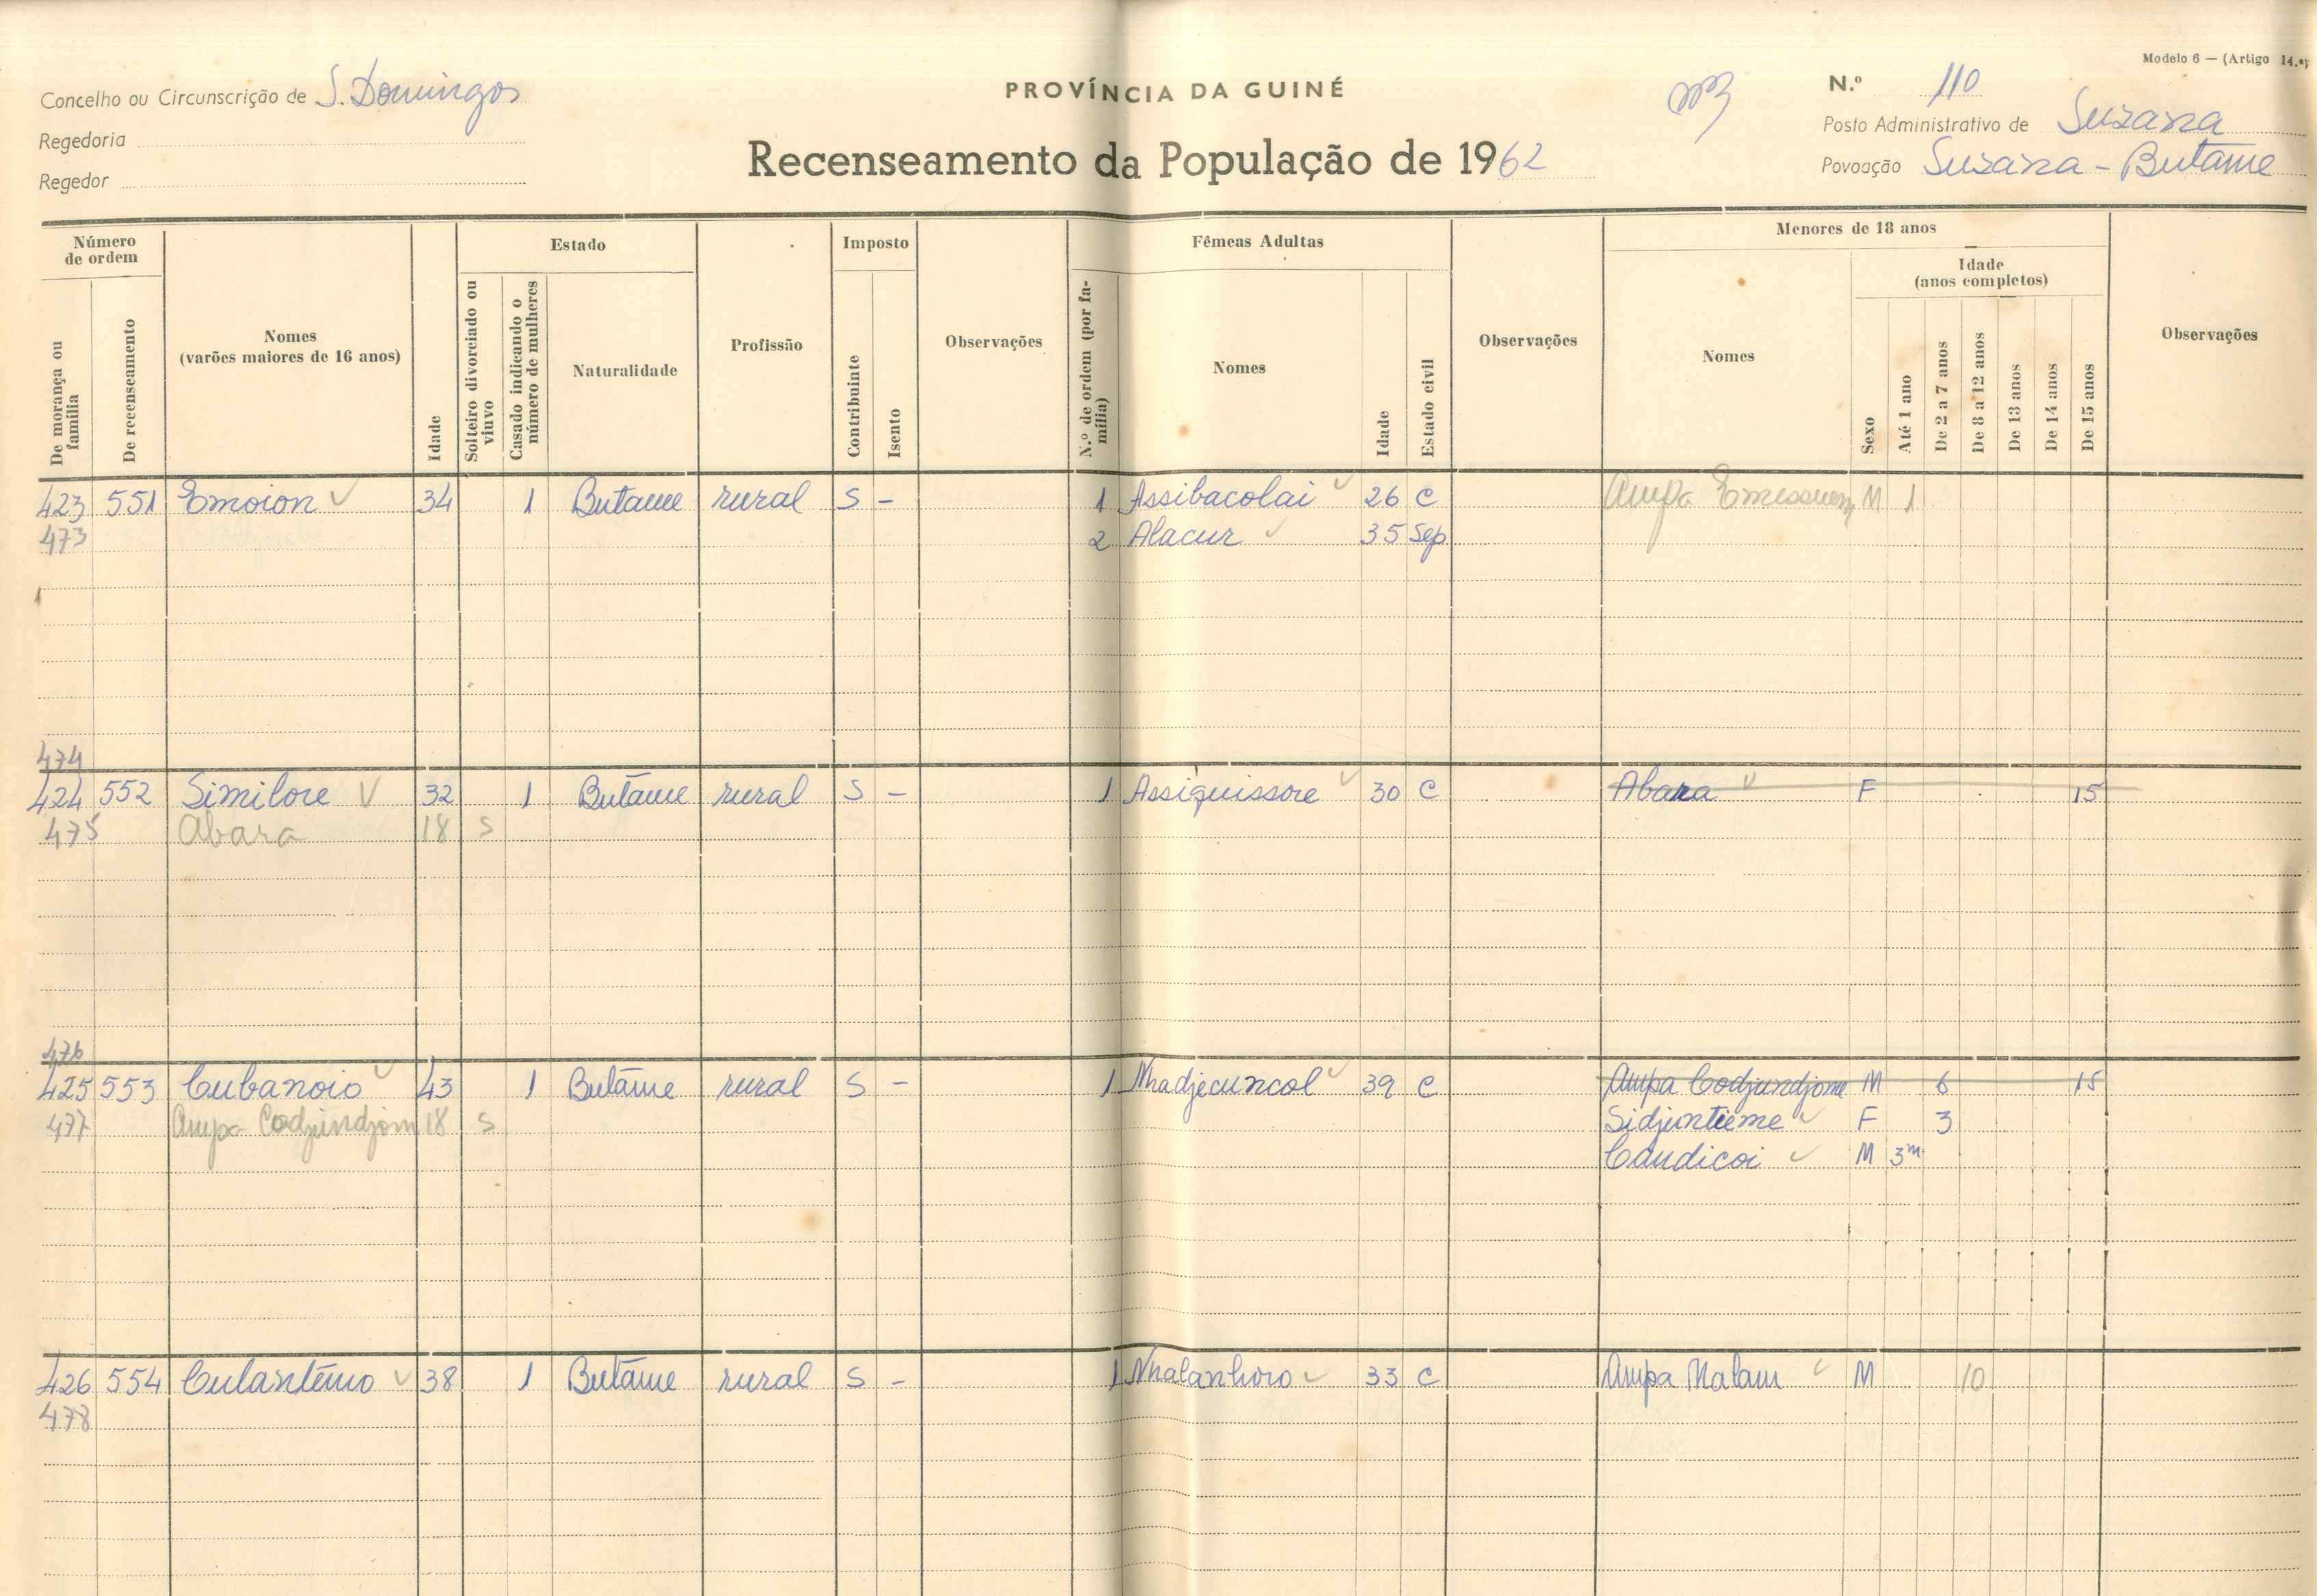 Modelo 6 — (Artigo 14.º)
Concelho ou Circunscrição de S. Domingos
PROVÍNCIA DA GUINÉ
N.º 110
Regedoria
Posto Administrativo de Suzana
Regedor
Recenseamento da População de 1962
Povoação Suzana - Butame
Número de ordem
De morança ou família
De recenseamento
Nomes (varões maiores de 16 anos)
Idade
Estado
Solteiro divorciado ou viuvo
Casado indicando o número de mulheres
Naturalidade
Profissão
Imposto
Contribuinte
Isento
Observações
Fêmeas Adultas
N.º de ordem (por família)
Nomes
Idade
Estado civil
Observações
Menores de 18 anos
Nomes
Sexo
Idade (anos completos)
Até 1 ano
De 2 a 7 anos
De 8 a 12 anos
De 13 anos
De 14 anos
De 15 anos
Observações
423 551 Emoion 34 1 Butame rural S - 1 Assibacolai 26 C Ampa M 1
473 2 Alacur 35 Sep
474
424 552 Similore 32 1 Butãme rural S - 1 Assiquissore 30 C Abara F 15
475 Abara 18 S
476
425 553 Cubanoio 43 1 Butãme rural S - 1 Nhadjecuncol 39 C Ampa Codjundjome M 6 15
477 Ampa Codjundjom 18 S Sidjuntieme F 3
Caudicoi M 3m
426 554 Culantêmo 38 1 Butãme rural S - 1 Nhalanhoro 33 C Ampa Malam M 10
478